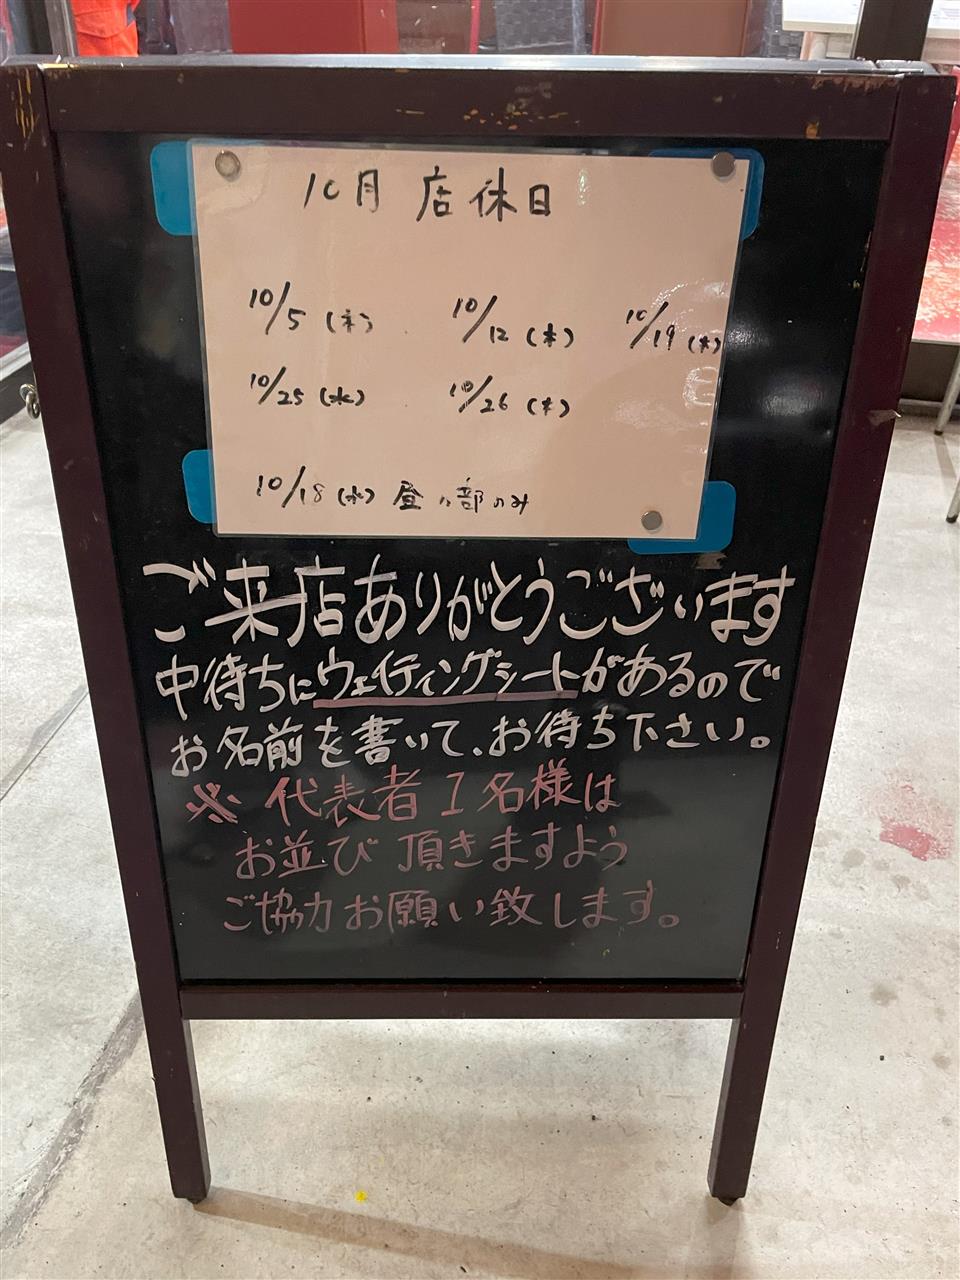 10月 店休日
10/5(木) 10/12(木) 10/19(木)
10/25(水) 10/26(木)
10/18(水) 昼の部のみ
ご来店ありがとうございます
中待ちにウェイティングシートがあるので
お名前を書いて、お待ち下さい。
※ 代表者1名様は
お並び頂きますよう
ご協力お願い致します。